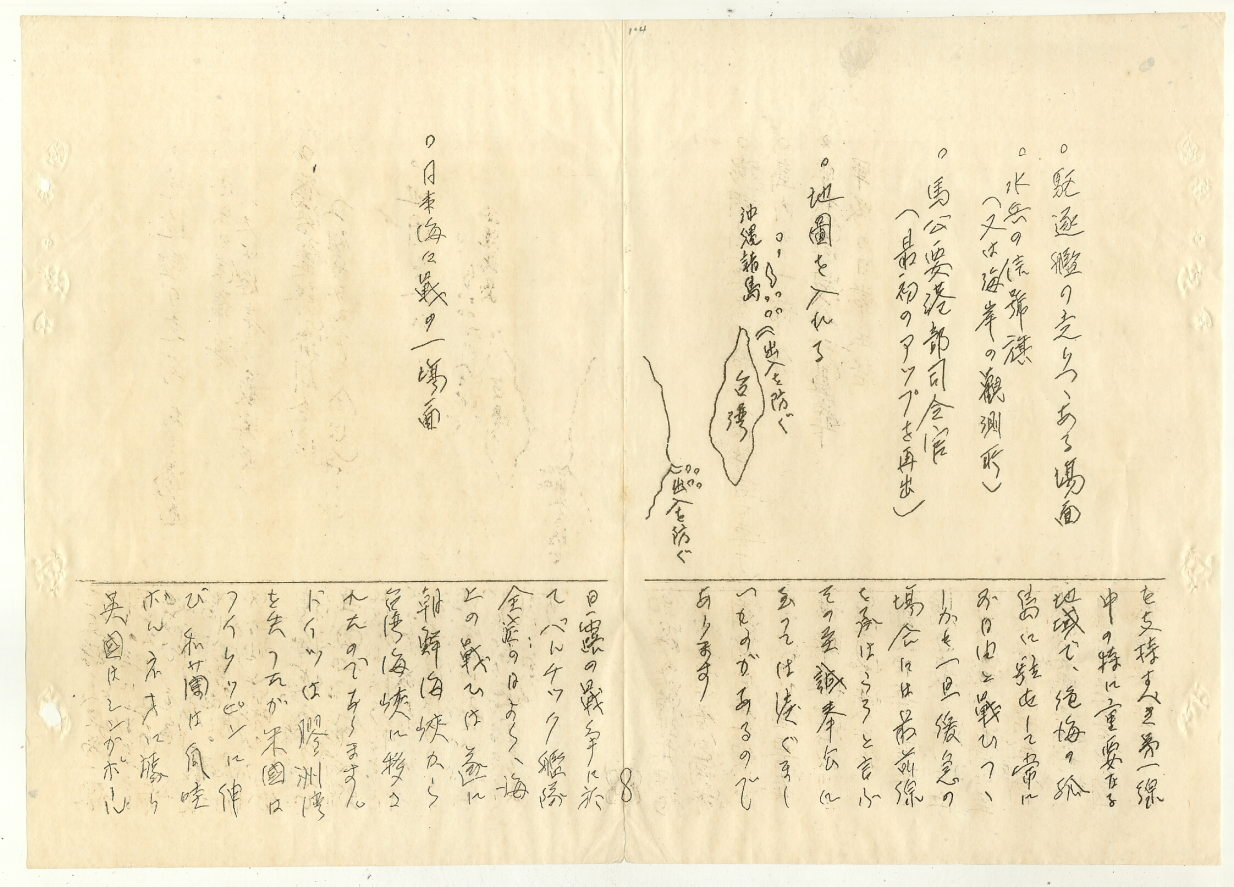 104
○駆逐艦の走りつゝある場面
○水兵の信號旗
(又は海岸の觀測所)
○馬公要港部司令官
(最初のアップを再出)
○地圖を入れる
(出入を防ぐ
沖縄諸島
台湾
(出入を防ぐ
を支持すべき第一線
中の特に重要なる
地域で、絶海の孤
島に駐在して常に
不自由と戦ひつゝ
しかも一旦緩急の
場合には最前線
を承はらうと言ふ
その至誠奉公に
至つては涙ぐまし
いものがあるので
あります
○日本海々戰の一場面
日露の戰争に於
てバルチック艦隊
全滅の日より、海
上の戰ひは遂に
朝鮮海峡から
台湾海峡に移さ
れたのであります。
ドイツは膠洲湾
を失つたが米國は
フイリッピンに伸
び和蘭は爪哇
ボルネオに勝り
英國はシンガポール
8